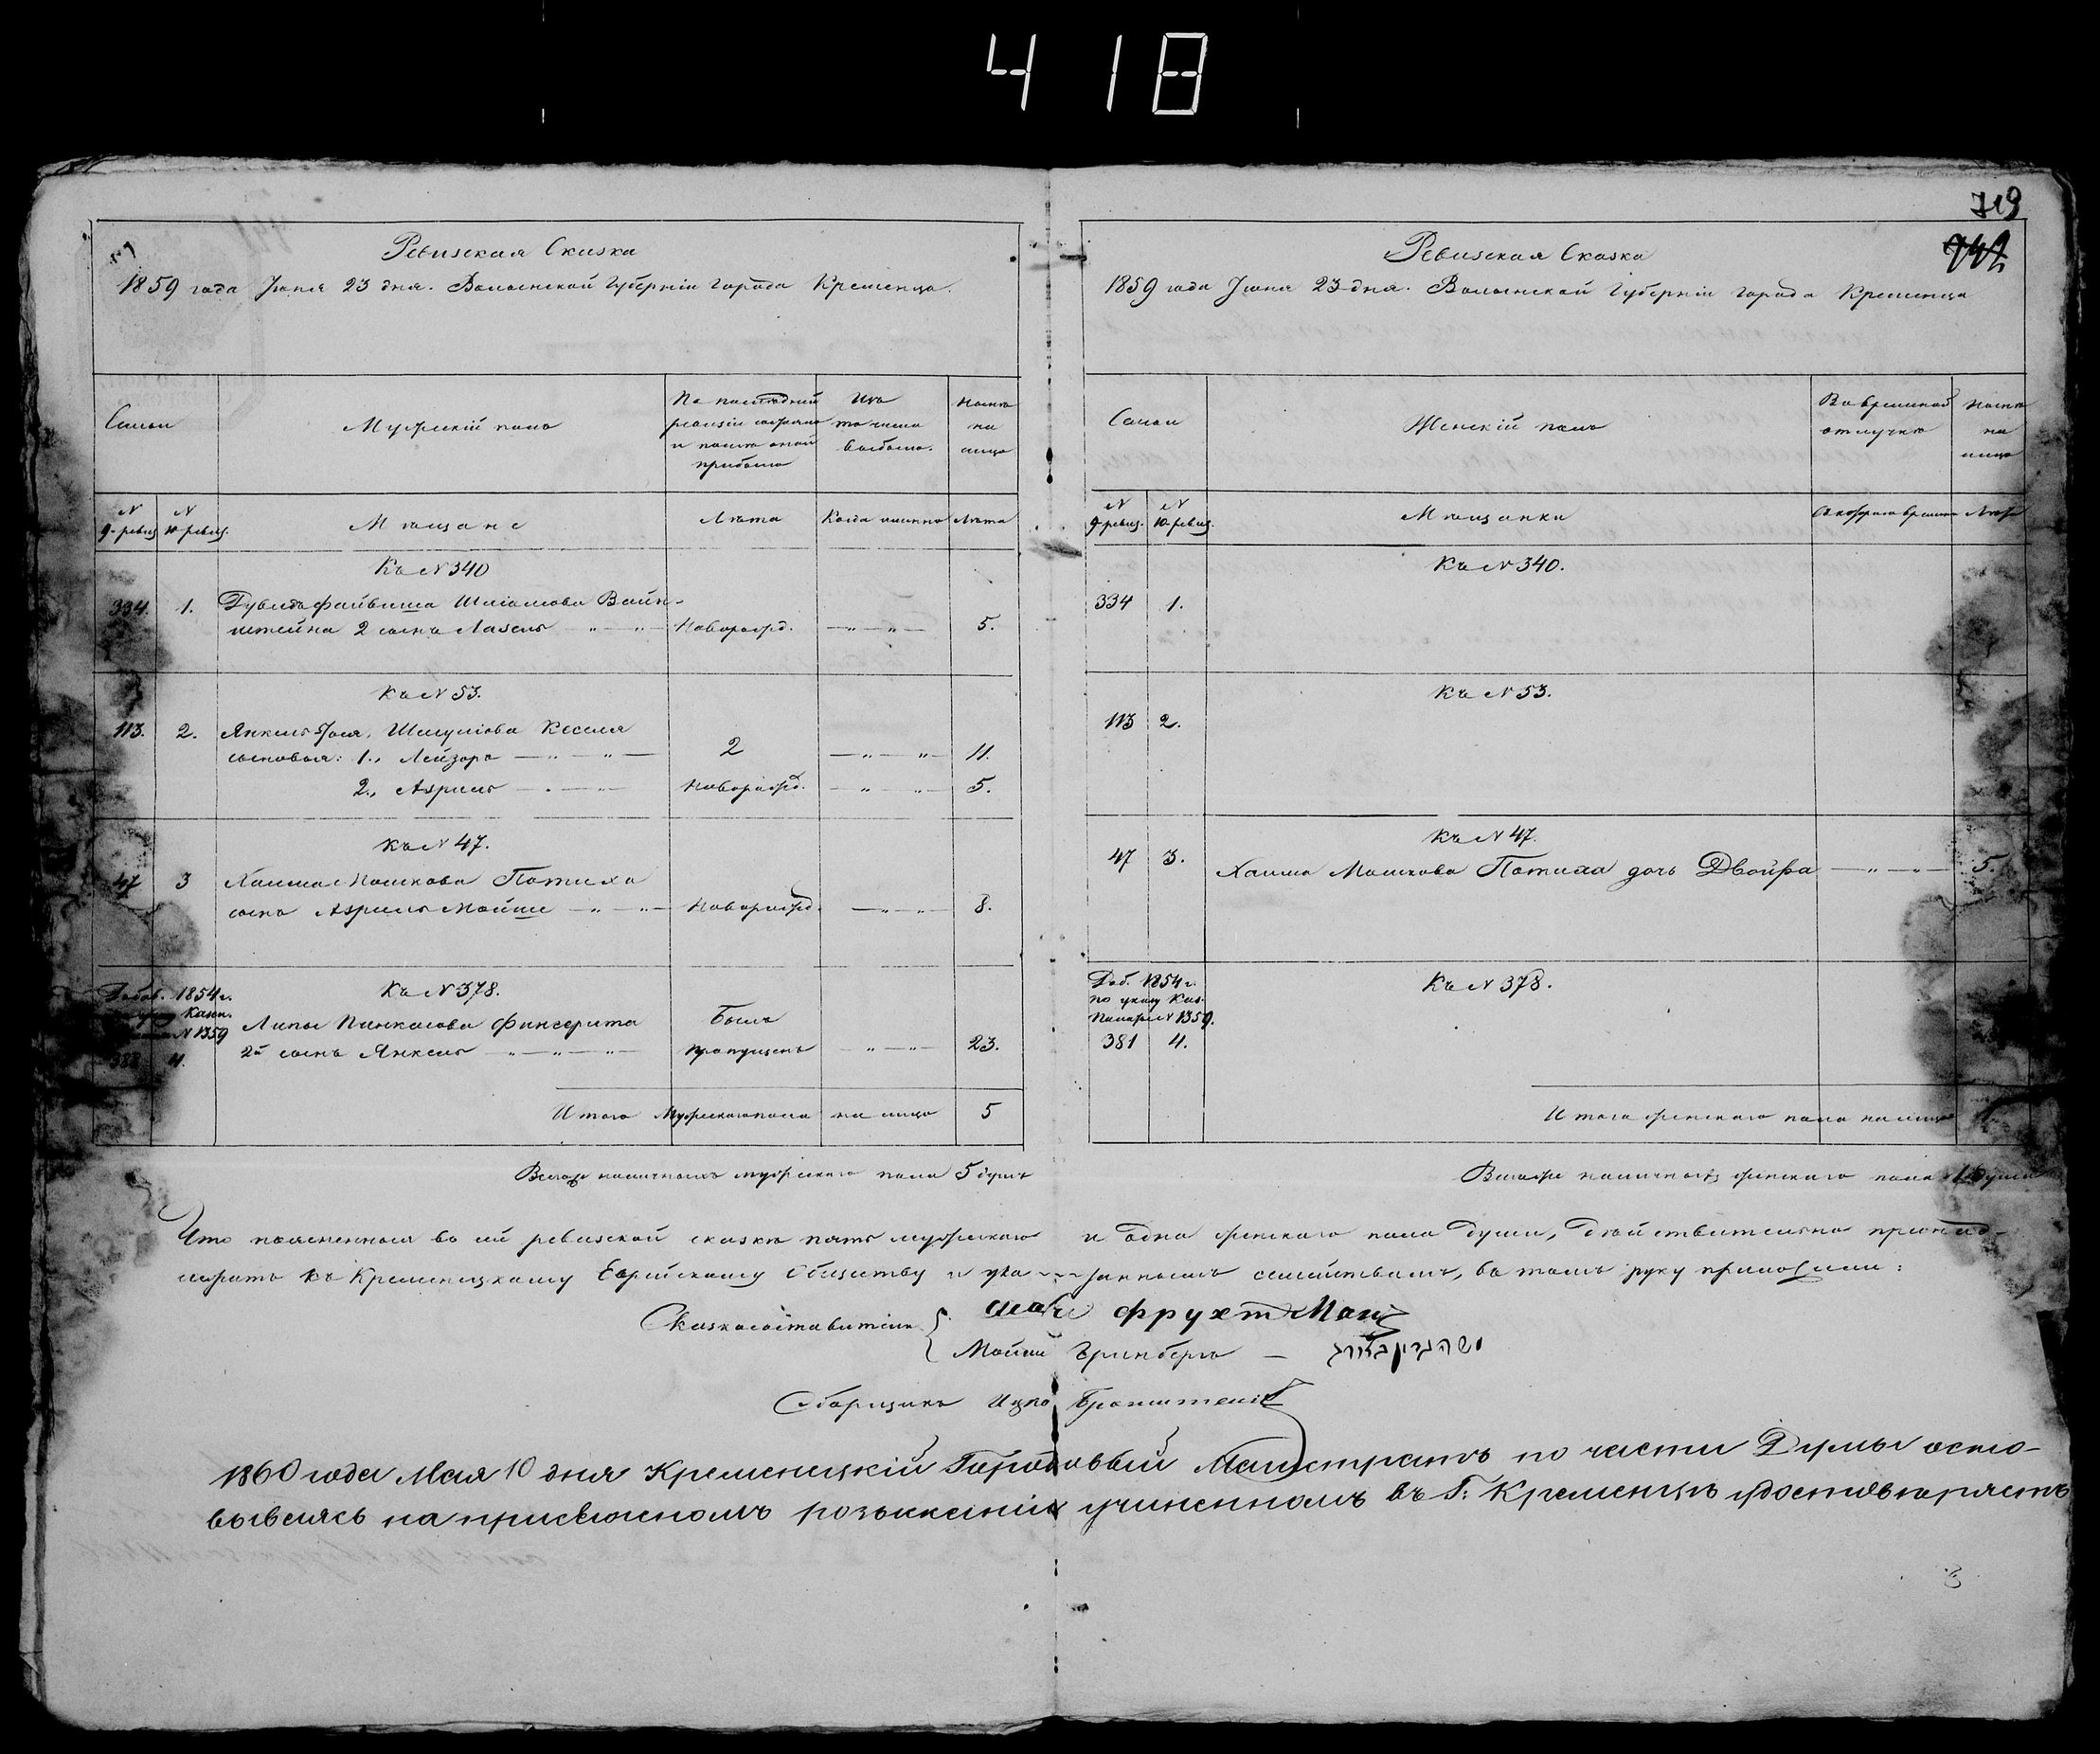 418
719
Ревизская Сказка
1859 года Июня 23 дня. Волынской Губерніи города Кременца.
Семьи
Мужескій полъ
По послѣдней ревизіи состояло и послѣ оной прибыло
Изъ то числа выбыло.
Нынѣ на лицо
N 9й ревиз.
N 10 ревиз.
Мѣщане
Лѣта
Когда именно
Лѣта
Къ N 340
334 1. Дувидъ Файвиша Вайн-
штейна 2 сынъ Лазель —"—"— Новорожд. —"—"— 5.
Къ N 53.
113. 2. Янкель Шмулiова Кесселя
сыновья: 1., Лейзоръ —"—"— 2 —"—"— 11.
2., Азриль — Новорожд. —"—"— 5.
Къ N 47.
47 3 Хаима Мошкова Потиха
сынъ Азриль Мойше —"—"— Новорожд. —"—"— 8.
Добав. 1854 г.
указу Казен.
N 1359
Къ N 378.
4. Липы Пинкасова Финсерита Былъ
2й сынъ Янкель —"—"—"— пропущенъ "—"— 23.
Итого Мужескаго пола на лицо 5
Всего наличныхъ мужескаго пола 5 душъ
Ревизская Сказка
1859 года Июня 23 дня. Волынской Губерніи города Кременца
Семьи
Женскій полъ
Во временной отлучкѣ
Нынѣ на лицо
N 9 ревиз.
N 10 ревиз.
Мѣщанки
Съ котораго времени
Лѣта
Къ N 340.
334 1.
Къ N 53.
113 2.
Къ N 47.
47 3. Хаима Мошкова Потиха дочь Двойра —"—"— 5.
Доб. 1854 г.
по указу Каз.
Палаты N 1359.
Къ N 378.
381 4.
Итого женскаго пола на лицо 1
Всего наличныхъ женскаго пола 1 душа
Что поясненныя въ сей ревизской сказкѣ пять мужескаго и одна женскаго пола души, дѣйствительно принад-
лежатъ къ Кременецкому Еврейскому Обществу и ука---заннымъ семействамъ, въ томъ руку приложили:
Сказкосоставители { Фрухтман
Мойше Гринбергъ — משה גרינבערג
Сборщикъ Ицко Бронштейн
1860 года Мая 10 дня Кременецкій Городовый Магистратъ по части Думы осно-
вываясь на присяжномъ розысканіи учиненномъ въ Г: Кременцѣ удостовѣряетъ